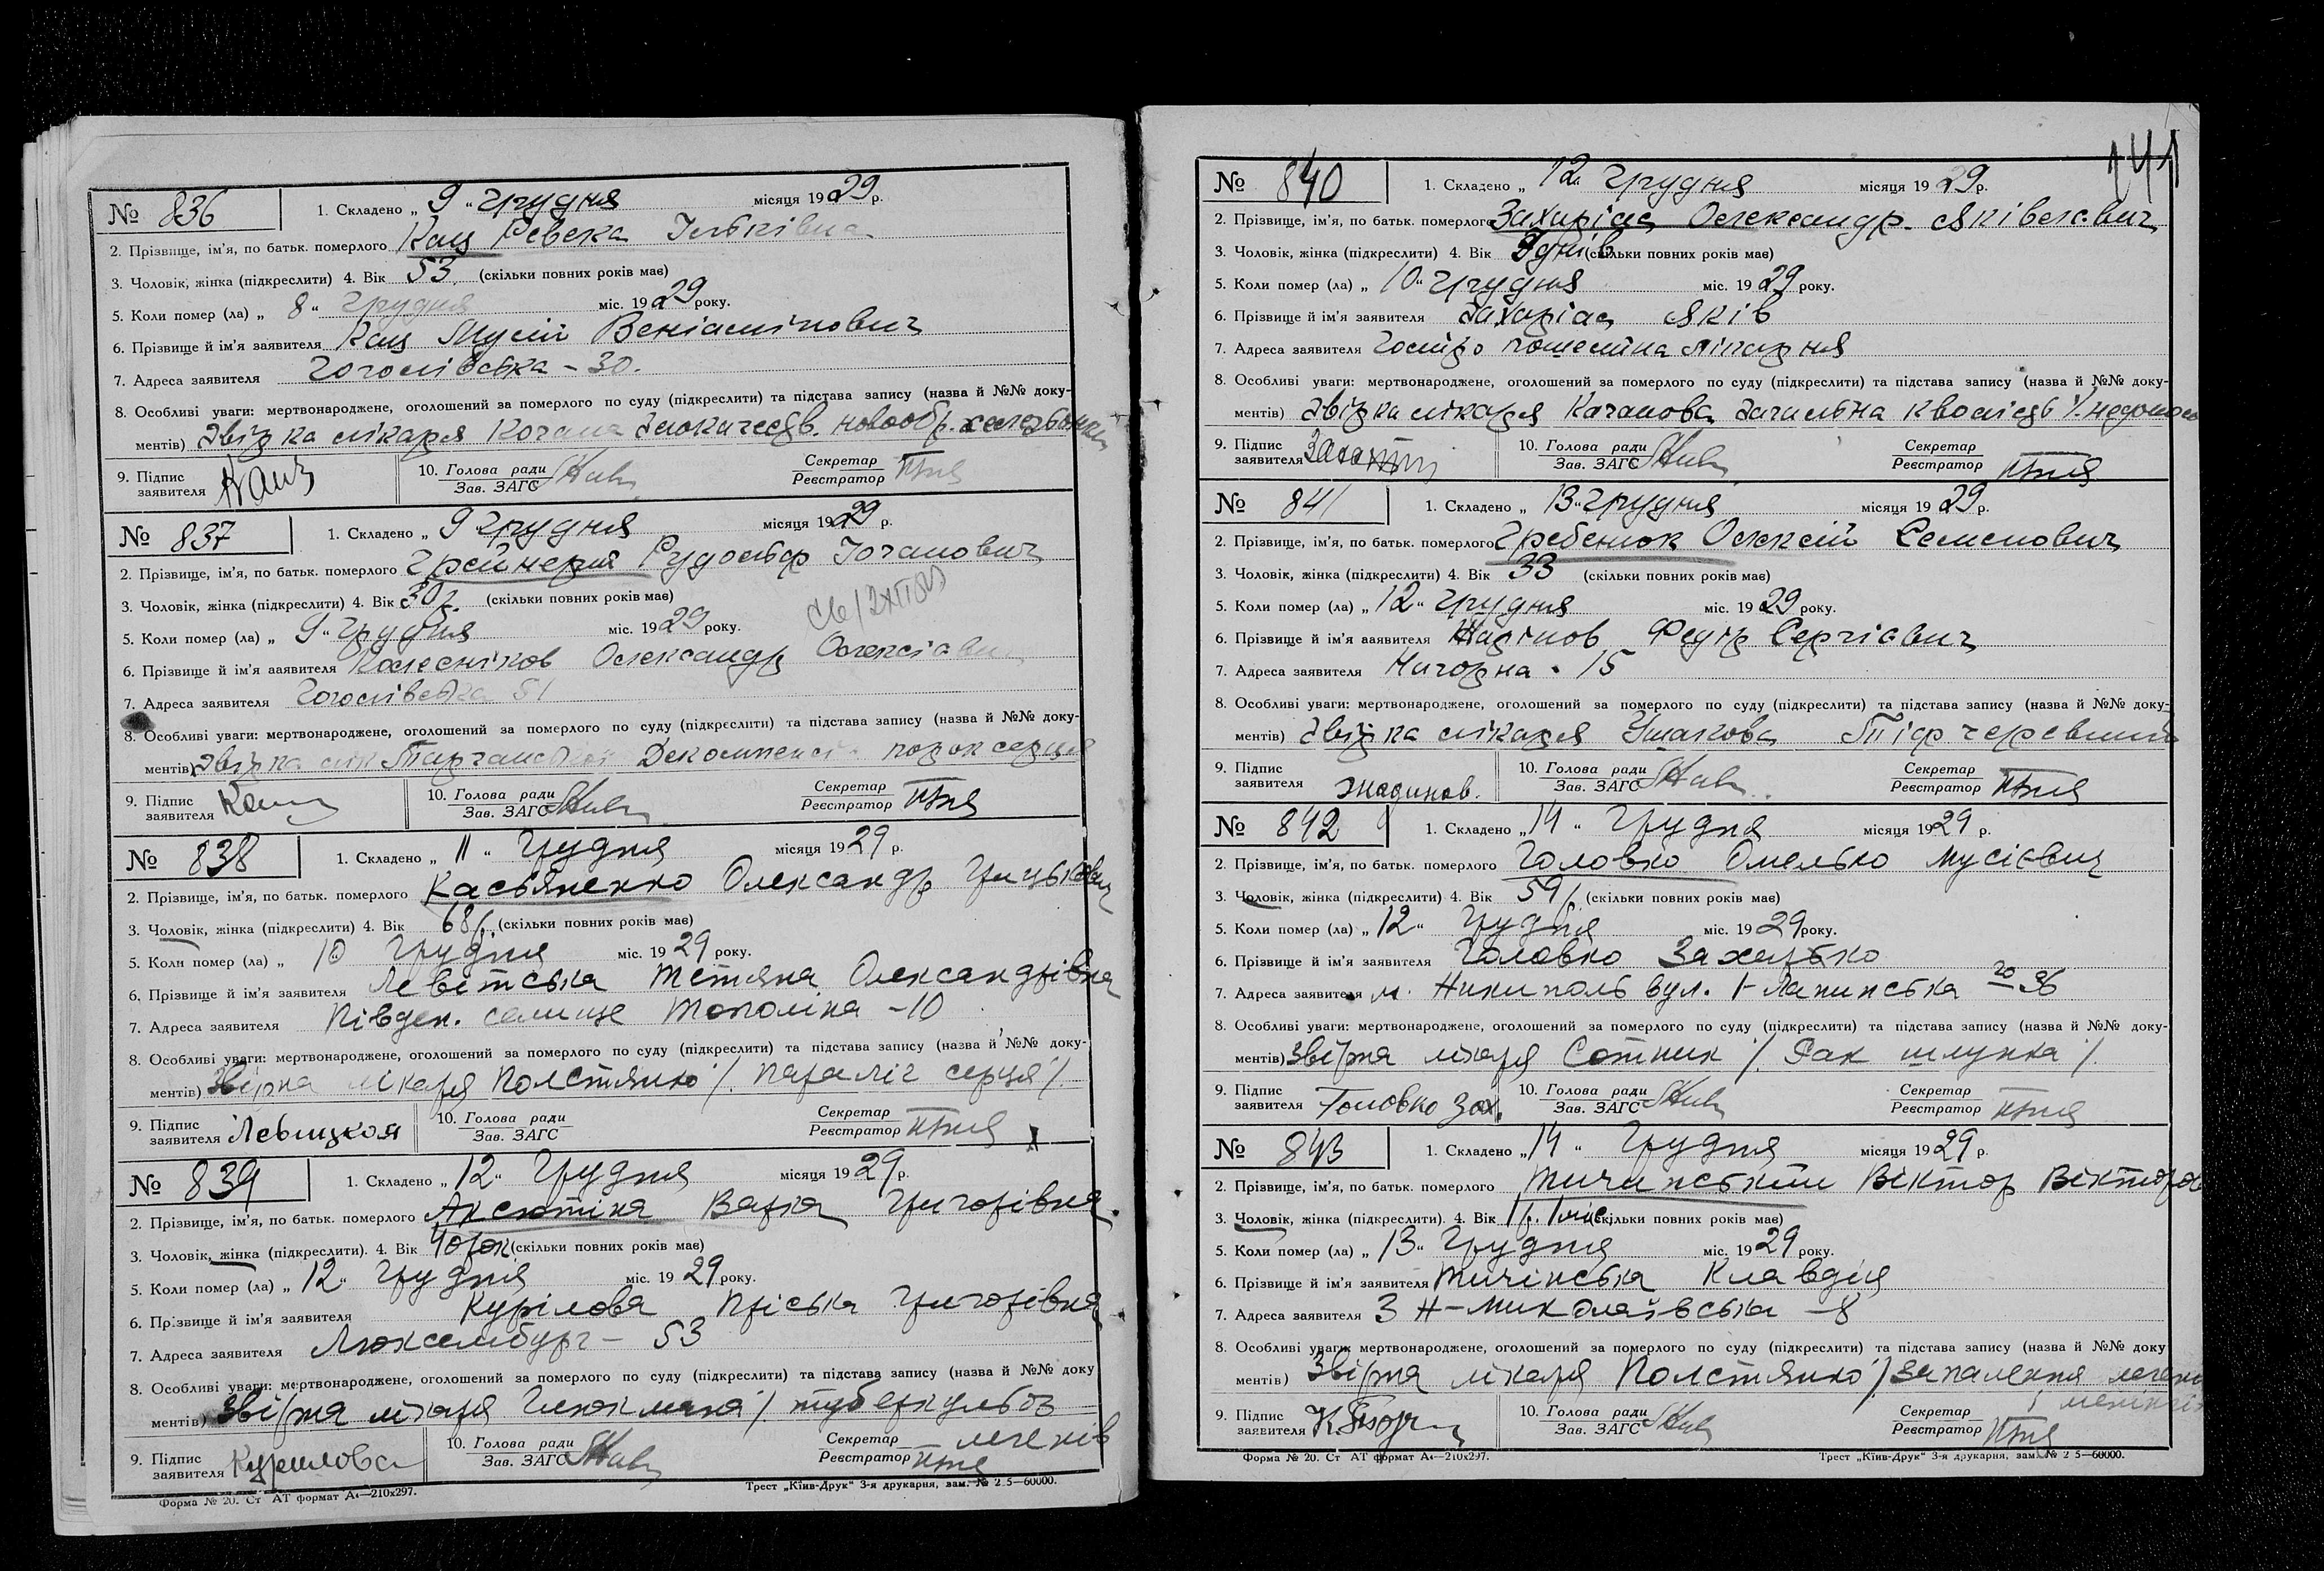 № 836 1. Складено „ 9 “ грудня місяця 1929 р.
2. Прізвище, ім'я, по батьк. померлого Кац Ревека Ільківна
3. Чоловік, жінка (підкреслити) 4. Вік 53. (скільки повних років має)
5. Коли помер (ла) „ 8 “ грудня міс. 1929 року.
6. Прізвище й ім'я заявителя Кац Мусій Веніамінович
7. Адреса заявителя Гоголівська – 30.
8. Особливі уваги: мертвонароджене, оголошений за померлого по суду (підкреслити) та підстава запису (назва й №№ доку-
ментів) Звірка лікаря новообр.
9. Підпис заявителя Кац 10. Голова ради Зав. ЗАГС Секретар Реєстратор
№ 837 1. Складено „ 9 “ грудня місяця 1929 р.
2. Прізвище, ім'я, по батьк. померлого Рудольф Іоганович
3. Чоловік, жінка (підкреслити) 4. Вік 30 р. (скільки повних років має)
5. Коли помер (ла) „ 9 “ грудня міс. 1929 року.
6. Прізвище й ім'я заявителя Колесніков Олександр Олексіевич
7. Адреса заявителя Гоголівська 51
8. Особливі уваги: мертвонароджене, оголошений за померлого по суду (підкреслити) та підстава запису (назва й №№ доку-
ментів) Звірка лік порок серця
9. Підпис заявителя 10. Голова ради Зав. ЗАГС Секретар Реєстратор
№ 838 1. Складено „ 11 “ Грудня місяця 1929 р.
2. Прізвище, ім'я, по батьк. померлого Касьяненко Олександр Грицькович
3. Чоловік, жінка (підкреслити) 4. Вік 68 р. (скільки повних років має)
5. Коли помер (ла) „ 10 Грудня міс. 1929 року.
6. Прізвище й ім'я заявителя Левітська Тетяна Олександрівна
7. Адреса заявителя Півден. селище Тополіна – 10
8. Особливі уваги: мертвонароджене, оголошений за померлого по суду (підкреслити) та підстава запису (назва й №№ доку-
ментів) Звірка лікаря Полстянко /параліч серця/
9. Підпис заявителя Левицкая 10. Голова ради Зав. ЗАГС Секретар Реєстратор
№ 839 1. Складено „ 12 “ Грудня місяця 1929 р.
2. Прізвище, ім'я, по батьк. померлого Аксютіна Варка Григорівна.
3. Чоловік, жінка (підкреслити). 4. Вік 40 рок (скільки повних років має)
5. Коли помер (ла) „ 12 “ Грудня міс. 1929 року.
6. Прізвище й ім'я заявителя Курілова Пріська Григорівна
7. Адреса заявителя Люксембург – 53
8. Особливі уваги: мертвонароджене, оголошений за померлого по суду (підкреслити) та підстава запису (назва й №№ доку
ментів) Звірка лікаря Глюкмана / туберкульоз
легенів
9. Підпис заявителя Курилова 10. Голова ради Зав. ЗАГС Секретар Реєстратор
Форма № 20. Ст АТ формат А4—210х297. Трест „Київ-Друк“ 3-я друкарня, зам. № 2 5—60000.
141
№ 840 1. Складено „ 12 “ Грудня місяця 1929 р.
2. Прізвище, ім'я, по батьк. померлого Захаріас Олександр Яківелевич
3. Чоловік, жінка (підкреслити) 4. Вік 9 днів (скільки повних років має)
5. Коли помер (ла) „ 10 “ грудня міс. 1929 року.
6. Прізвище й ім'я заявителя Захаріас Яків
7. Адреса заявителя лікарня
8. Особливі уваги: мертвонароджене, оголошений за померлого по суду (підкреслити) та підстава запису (назва й №№ доку-
ментів) Звірка лікаря Качанова загальна кволість
9. Підпис заявителя 10. Голова ради Зав. ЗАГС Секретар Реєстратор
№ 841 1. Складено „ 13 “ грудня місяця 1929 р.
2. Прізвище, ім'я, по батьк. померлого Гребенюк Олексій Семенович
3. Чоловік, жінка (підкреслити) 4. Вік 33 (скільки повних років має)
5. Коли помер (ла) „ 12 “ грудня міс. 1929 року.
6. Прізвище й ім'я заявителя Жадінов Федір Сергієвич
7. Адреса заявителя Нагорна . 15
8. Особливі уваги: мертвонароджене, оголошений за померлого по суду (підкреслити) та підстава запису (назва й №№ доку-
ментів) Звірка лікаря Ушакова Тіф черевний
9. Підпис заявителя Жадинов. 10. Голова ради Зав. ЗАГС Секретар Реєстратор
№ 842 1. Складено „ 14 “ Грудня місяця 1929 р.
2. Прізвище, ім'я, по батьк. померлого Головко Омелько Мусієвич
3. Чоловік, жінка (підкреслити) 4. Вік 59 р. (скільки повних років має)
5. Коли помер (ла) „ 12 “ Грудня міс. 1929 року.
6. Прізвище й ім'я заявителя Головко Захарко
7. Адреса заявителя м. Никиполь вул. 36
8. Особливі уваги: мертвонароджене, оголошений за померлого по суду (підкреслити) та підстава запису (назва й №№ доку-
ментів) Звірка лікаря Сотник / Рак шлунка /.
9. Підпис заявителя Головко Зах. 10. Голова ради Зав. ЗАГС Секретар Реєстратор
№ 843 1. Складено „ 14 “ Грудня місяця 1929 р.
2. Прізвище, ім'я, по батьк. померлого Тичинський Віктор Вікторов
3. Чоловік, жінка (підкреслити). 4. Вік 1 р. 1 міс. (скільки повних років має)
5. Коли помер (ла) „ 13 “ Грудня міс. 1929 року.
6. Прізвище й ім'я заявителя Тичінська Клавдія
7. Адреса заявителя 3 Н–Миколаївська – 8
8. Особливі уваги: мертвонароджене, оголошений за померлого по суду (підкреслити) та підстава запису (назва й №№ доку
ментів) Звірка лікаря Полстянко / запалення легень
і менінгіт
9. Підпис заявителя 10. Голова ради Зав. ЗАГС Секретар Реєстратор
Форма № 20. Ст АТ формат А4—210х297. Трест „Київ-Друк“ 3-я друкарня, зам. № 2 5—60000.